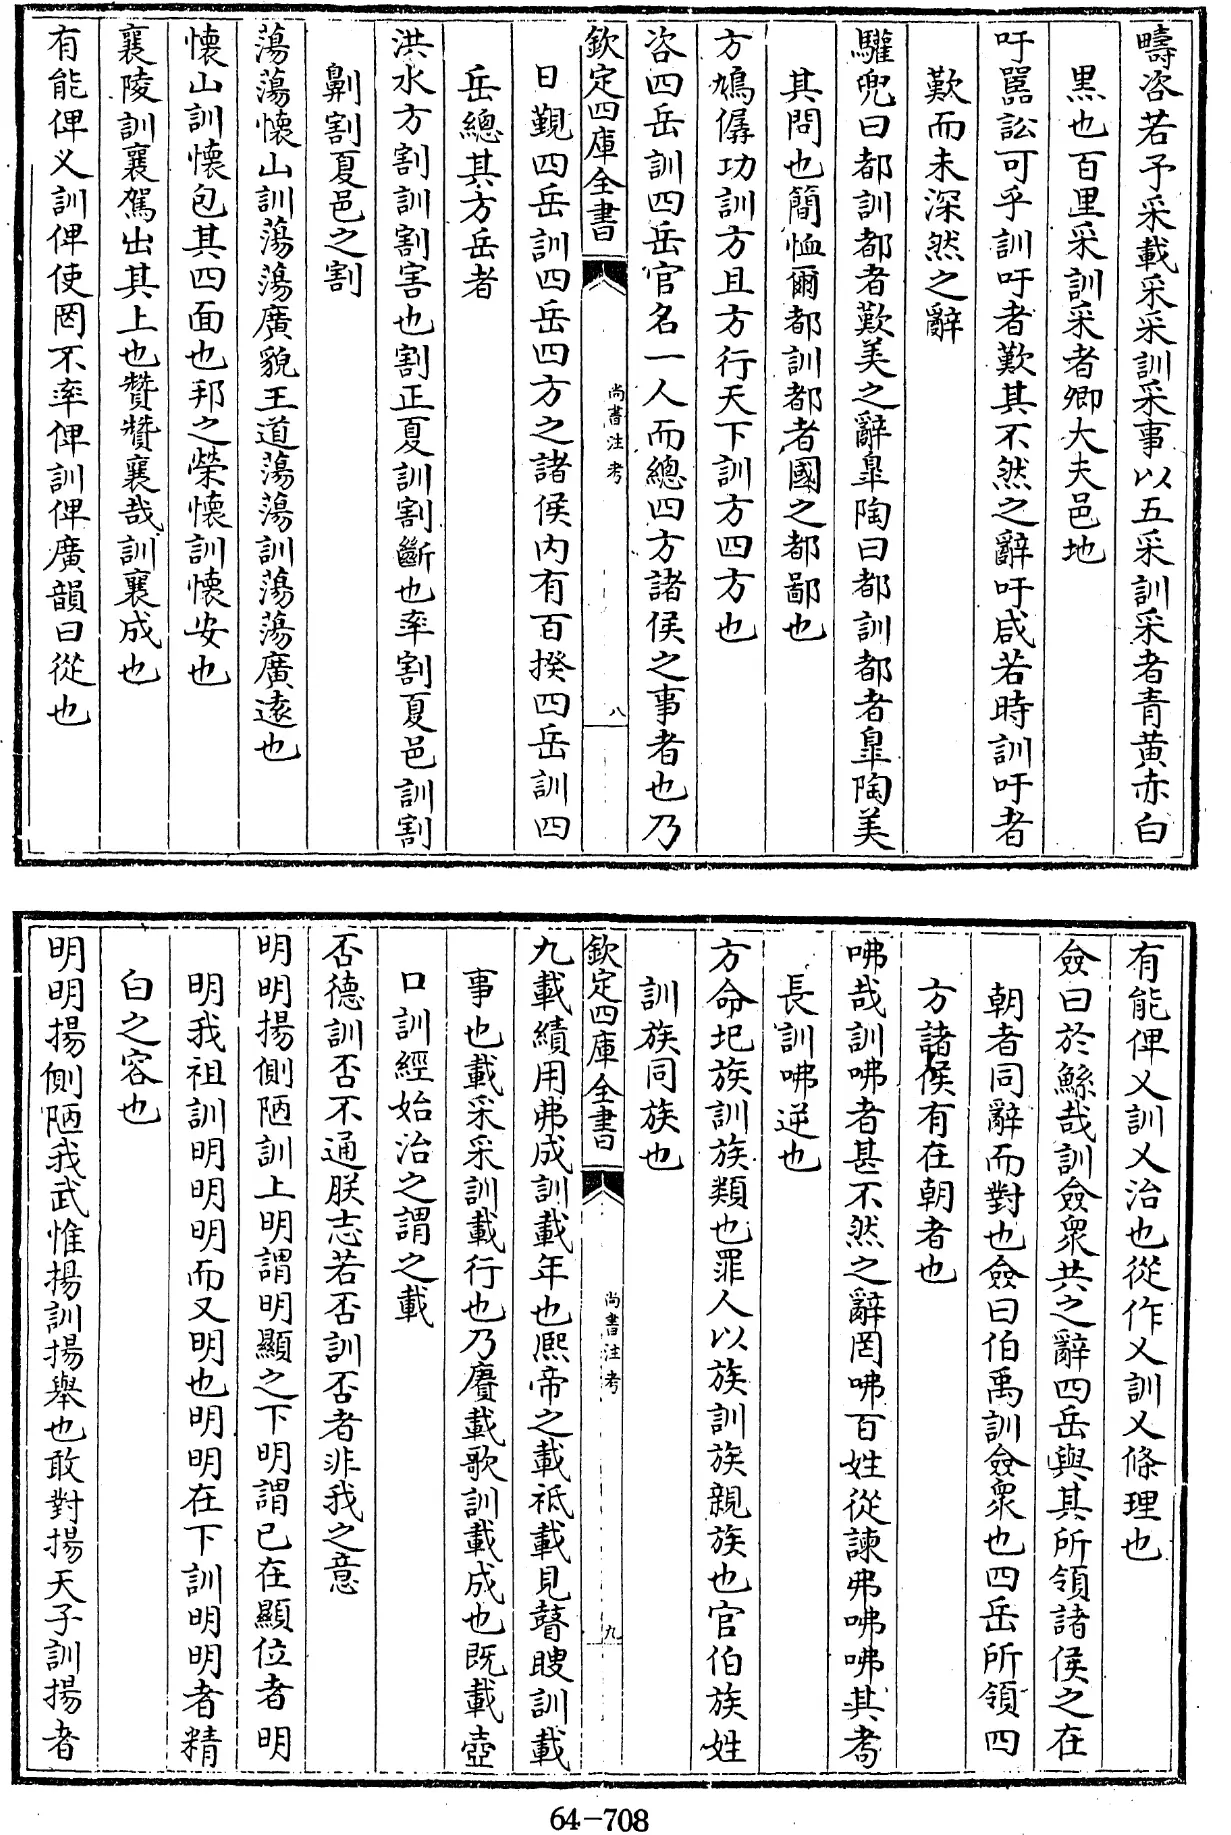 疇咨若予采載采采訓采事以五采訓采者青黃赤白
黒也百里采訓采者卿大夫邑地
吁嚚訟可乎訓吁者歎其不然之辭吁咸若時訓吁者
歎而未深然之辭
驩兜曰都訓都者歎美之辭臯陶曰都訓都者臯陶美
其問也簡恤爾都訓都者國之都鄙也
方鳩僝功訓方且方行天下訓方四方也
咨四岳訓四岳官名一人而總四方諸侯之事者也乃
欽定四庫全書
尚書注考
八
日覲四岳訓四岳四方之諸侯内有百揆四岳訓四
岳總其方岳者
洪水方割訓割害也割正夏訓割斷也率割夏邑訓割
劓割夏邑之割
蕩蕩懷山訓蕩蕩廣貌王道蕩蕩訓蕩蕩廣逺也
懐山訓懐包其四面也邦之榮懐訓懐安也
襄陵訓襄駕出其上也贊贊襄哉訓襄成也
有能俾乂訓俾使罔不率俾訓俾廣韻曰從也
有能俾乂訓乂治也從作乂訓乂條理也
僉曰於鯀哉訓僉衆共之辭四岳與其所領諸侯之在
朝者同辭而對也僉曰伯禹訓僉衆也四岳所領四
方諸侯有在朝者也
咈哉訓咈者甚不然之辭罔咈百姓從諫弗咈咈其耇
長訓咈逆也
方命圮族訓族類也罪人以族訓族親族也官伯族姓
訓族同族也
欽定四庫全書
尚書注考
九
九載績用弗成訓載年也熈帝之載祗載見瞽瞍訓載
事也載采采訓載行也乃賡載歌訓載成也既載壺
口訓經始治之謂之載
否德訓否不通朕志若否訓否者非我之意
明明揚側陋訓上明謂明顯之下明謂已在顯位者明
明我祖訓明明明而又明也明明在下訓明明者精
白之容也
明明揚側陋我武惟揚訓揚舉也敢對揚天子訓揚者
64-708